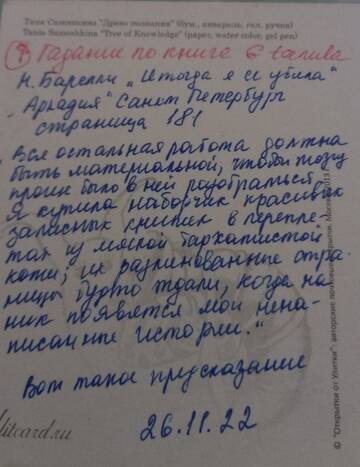 Таня Самошкина "Древо познания" (бум., акварель, гел. ручка)
Tania Samoshkina "Tree of Knowledge" (paper, water color, gel pen)
Гадание по книге
Н. Барелли "И тогда я её убила"
Аркадия" Санкт Петербург
страница 181
Вся остальная работа должна
быть материальной, чтобы
было в ней разобраться.
Я купила наборчик красивых
записных книжек в перепле-
тах из мягкой бархатистой
кожи; их разлинованные стра-
ницы будто ждали, когда на
них появятся мои нена-
писанные истории."
Вот такое предсказание
26.11.22
litcard.ru
© "Открытки от Улитки": авторские почтовые открытки. Москва, 2013